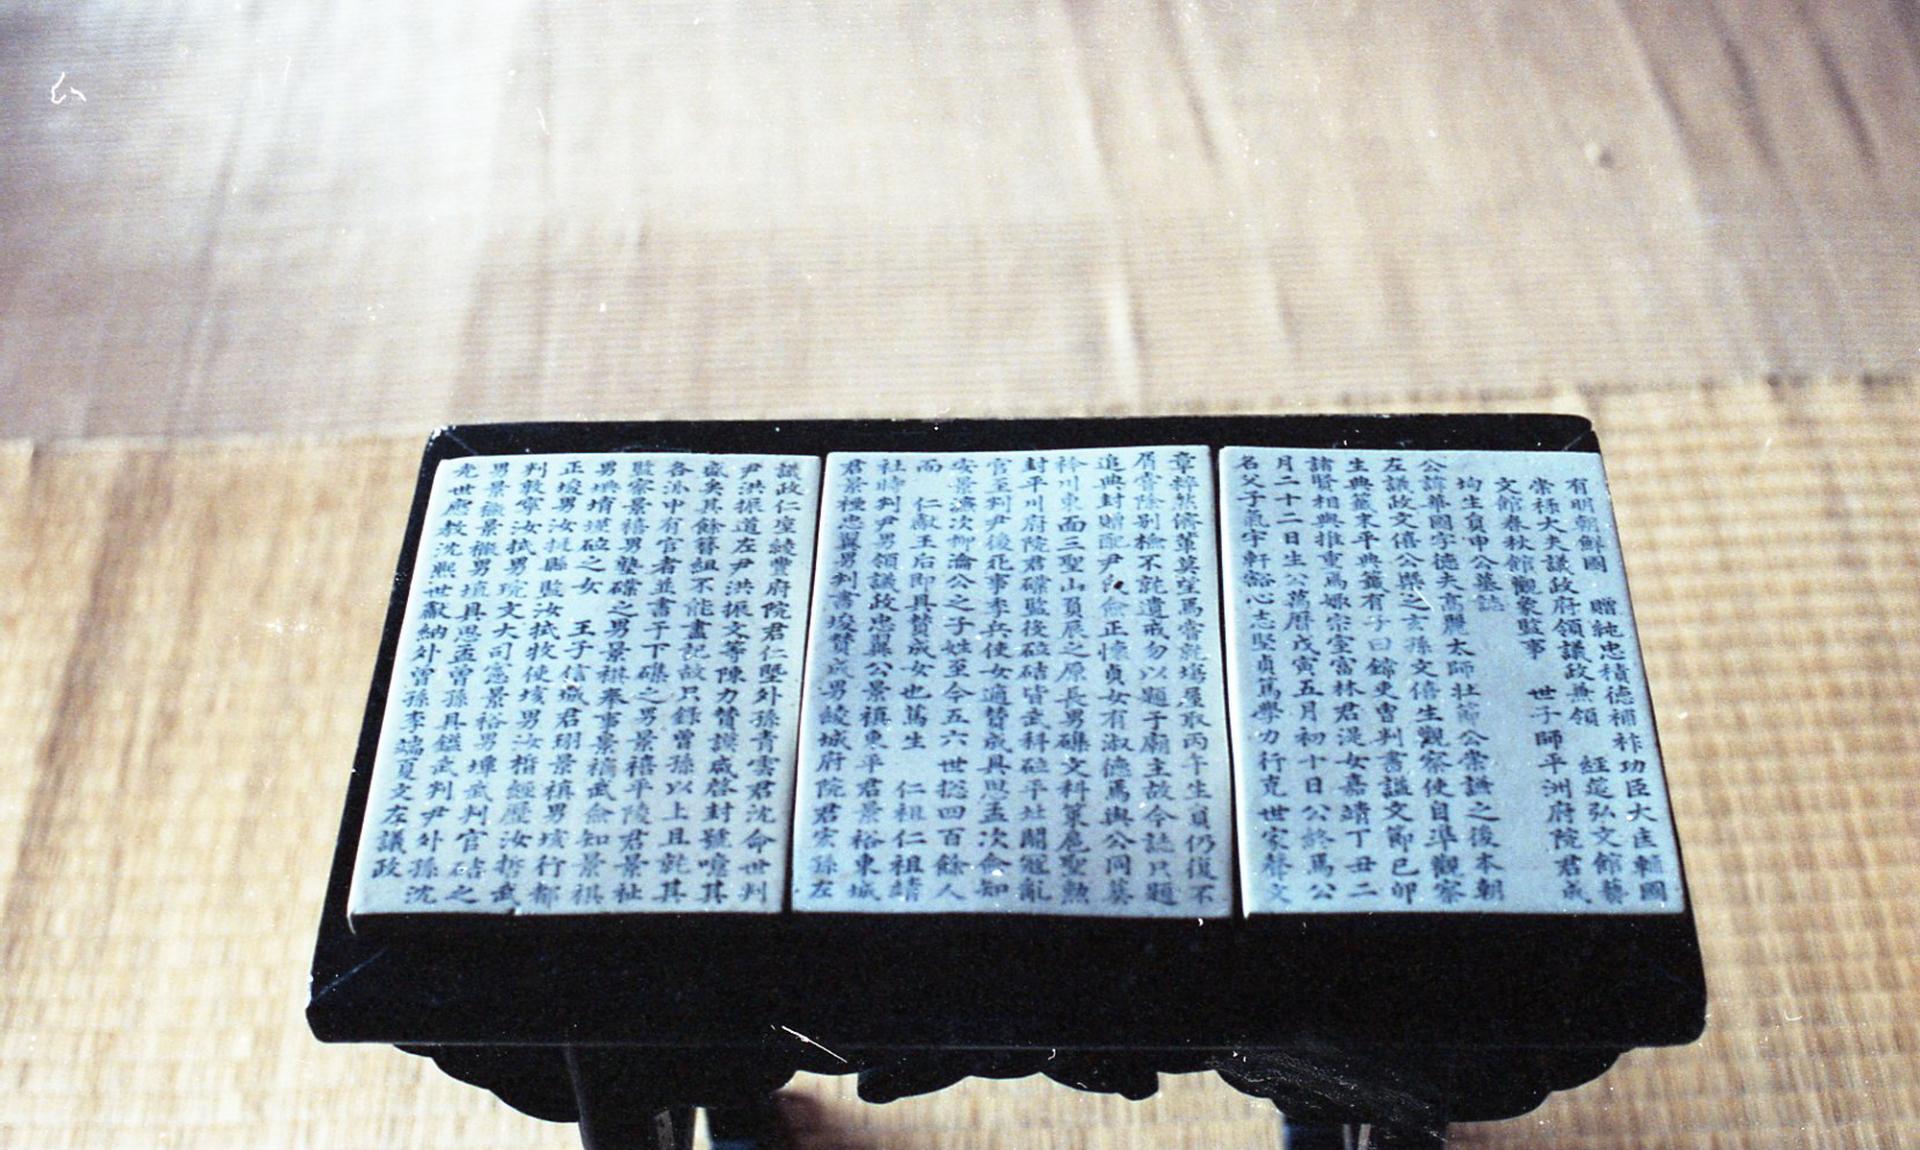 有明朝鮮國 贈純忠積德補祚功臣大匡輔國
崇祿大夫議政府領議政兼領 經筵弘文館藝
文館春秋館觀象監事 世子師平洲府院君成
均生員申公墓誌
公諱華國字德夫高麗太師壯節公崇謙之後本朝
左議政文僖公槩之玄孫文僖生觀察使自準觀察
生典簽末平典簽有子曰鏛吏曹判書諡文節己卯
諸賢相與推重焉娶宗室富林君湜女嘉靖丁丑二
月二十二日生公萬曆戊寅五月初十日公終焉公
名父子氣宇軒豁心志堅貞篤學力行克世家聲文
章粹然儕輩莫望焉嘗就場屋取丙午生員仍復不
屑齋除別檢不就遺戒勿以題子廟主故今誌只題
追典封贈配尹 儉正懷貞女有淑德焉與公同葬
衿川東面三聖山負辰之原長男礏文科策扈聖勳
封平川府院君磼監後砬硈皆武科砬平壯閫冠亂
官至判尹後死事季兵使女適贊成具思孟次僉知
安景濂次柳瀹公之子姓至今五六世捴四百餘人
而 仁獻王后即具贊成女也篤生 仁祖仁祖靖
社時判尹男領議政忠翼公景禛東平君景裕東城
君景種忠翼男判書埈贊成男綾城府院君宏孫左
議政仁垕綾豐府院君仁墍外孫青雲君沈命世判
尹洪振道左尹洪振文等陳力贊謨咸啓封號噫其
盛矣其餘簪組不能盡記故只錄曾孫以上且就其
各派中有官者並書于下磼之男景禧平陵君景祉
監察景禧男墊磼之男景祺奉事景禴武僉知景祺
男 堉 砬之女 王子信城君珝景禛男垓行都
正埈男汝挺縣監汝拭牧使垓男汝楷經歷汝哲武
判敦寧汝拭男琓文大司憲景裕男㙻武判官硈之
男景 景 男埴具思孟曾孫具鎰武判尹外孫沈
光世應教沈熙世獻納外曾孫李端夏文左議政